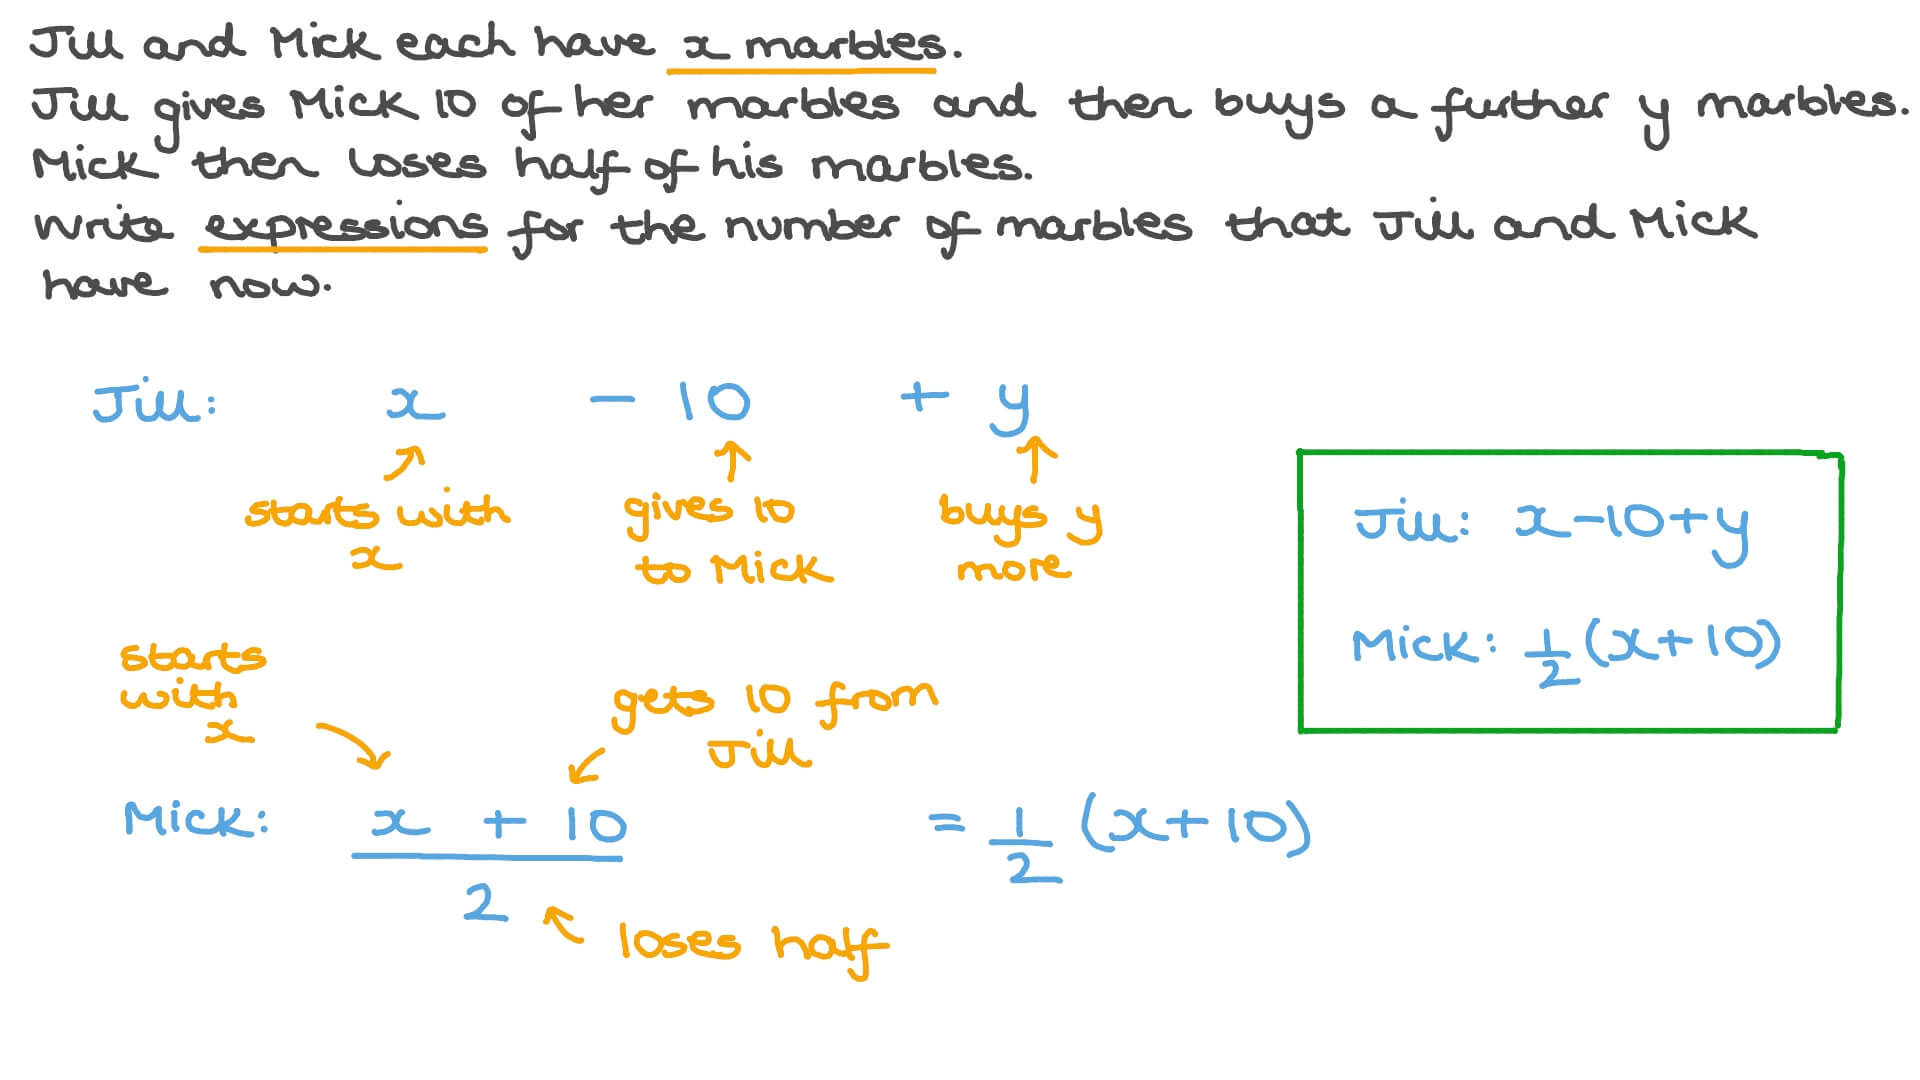 Jill and Mick each have x marbles.
Jill gives Mick 10 of her marbles and then buys a further y marbles.
Mick then loses half of his marbles.
Write expressions for the number of marbles that Jill and Mick
have now.
Jill: x - 10 + y
starts with
x
gives 10
to Mick
buys y
more
Jill: x-10+y
Mick: 1/2 (x+10)
starts
with
x
gets 10 from
Jill
Mick: x + 10
2
= 1/2 (x+10)
loses half